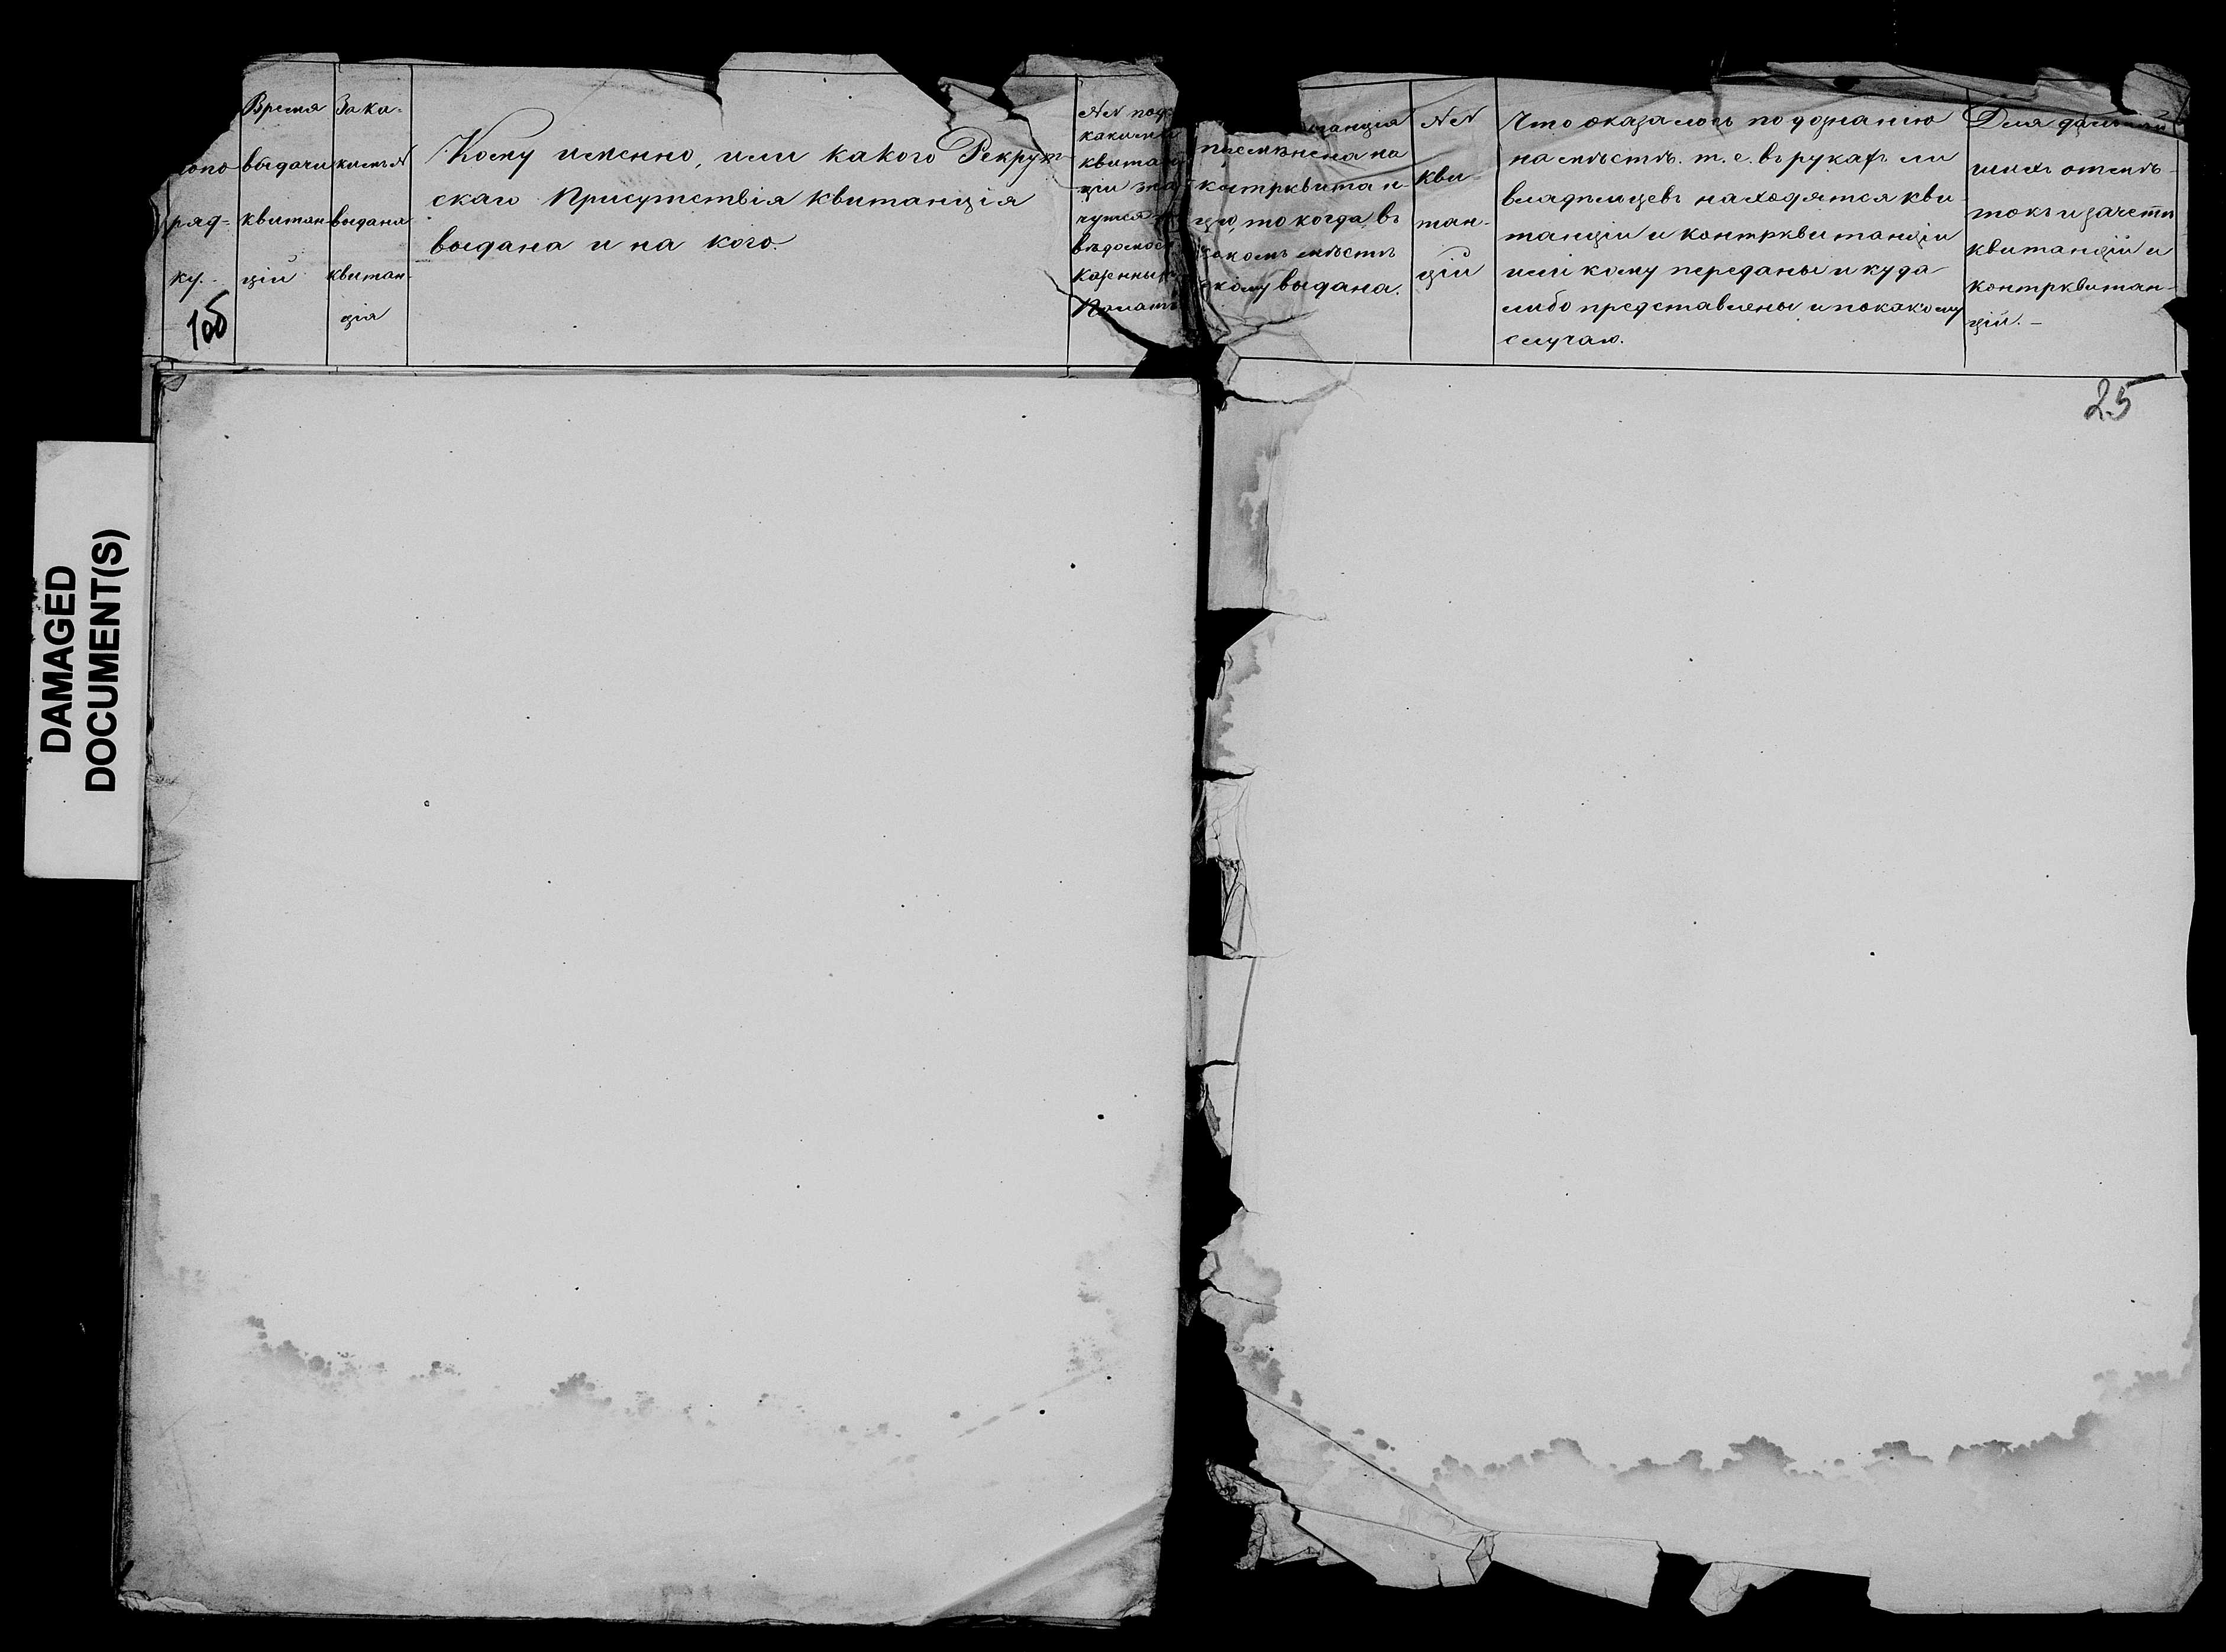 ряд-
ку.
Время
выдачи
квитан
цій
За ка-
кимъ №
выдана
квитан-
ція
Кому именно, или какого Рекрут-
скаго Присутствія квитанція
выдана и на кого.
№№ подъ
какими
квитан
ціи зна
чутся
вѣдомос
казенны
Палатъ
танція
на
контрквитан-
цію, то когда, въ
какомъ мѣстѣ
и кому выдана.
№№
кви-
тан-
цій
Что оказалось по дознанію
на мѣстѣ. т. е. въ рукахъ ли
владѣльцевъ находятся кви-
танціи и контрквитанціи
или кому переданы и куда
либо представлены и по какому
случаю.
Для дальнѣй
шихъ отмѣ-
токъ и зачетѣ
квитанцій и
контрквитан-
цій. -
25
DAMAGED
DOCUMENT(S)